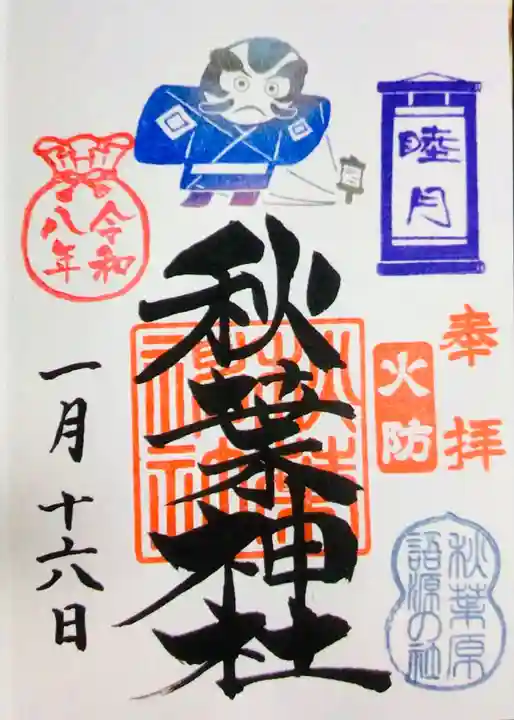 睦月
奉拝
火防
秋葉原
語源の社
秋葉神社
秋葉
神社
令和
八年
一月十六八日